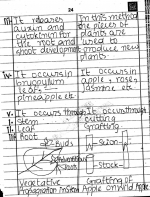 24
III. It releases
auxin and
cytokinin for
the root and
shoot development
In this method
the pieces of
plants are
used to
produce new
plants
IV. It occurs in
leaf
pineapple etc
It occurs in
apple, rose,
Jasmine etc
V. It occurs through
I. Stem
II. Leaf
III. Root
It occurs through
cutting
grafting
Buds
Scion
Stock
Vegetative
Propagation
Grafting of
Apple on Wild Apple